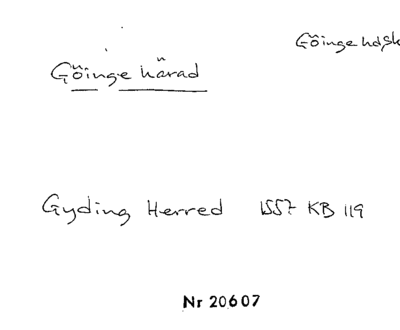 Göinge hd, Sk
Göinge härad
Gyding Herred 1557 KB 119
Nr 20607